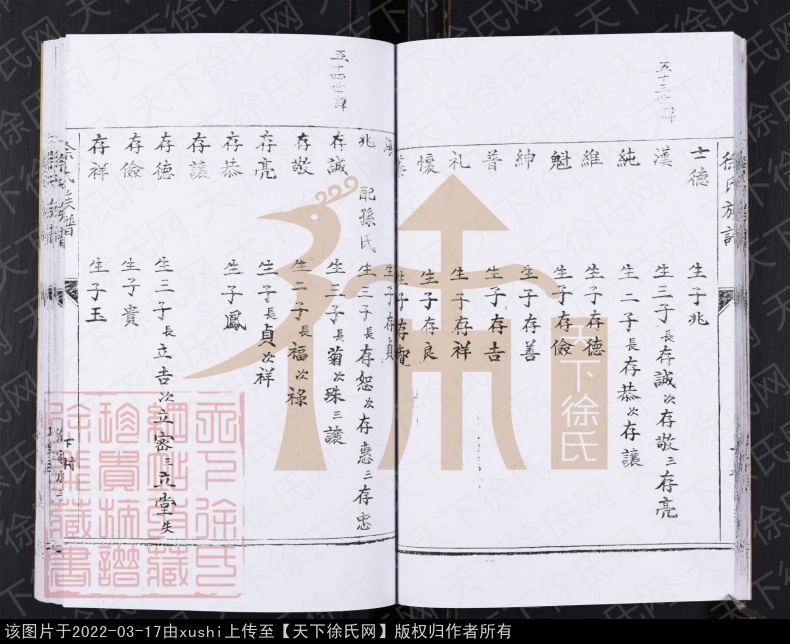 五十三世譁
士德 生子兆
漢 生三子長存誠次存敬三存亮
純 生二子長存恭次存讓
維 生子存德
魁 生子存儉
紳 生子存善
普 生子存吉
礼 生子存祥
懷 生子存良
生子存智
徐氏族譜
五十四世譁
生子存貞
兆 配孫氏 生三子長存恕次存惠三存忠
存誠 生三子長菊次珠三讓
存敬 生二子長福次祿
存亮 生子長貞次祥
存恭 生子鳳
存讓
存德 生三子長立吉次立審三立堂失
存儉 生子貴
存祥 生子玉
徐氏族譜
天下徐氏
天下徐氏網站珍藏
天下徐氏网
该图片于2022-03-17由xushi上传至【天下徐氏网】版权归作者所有